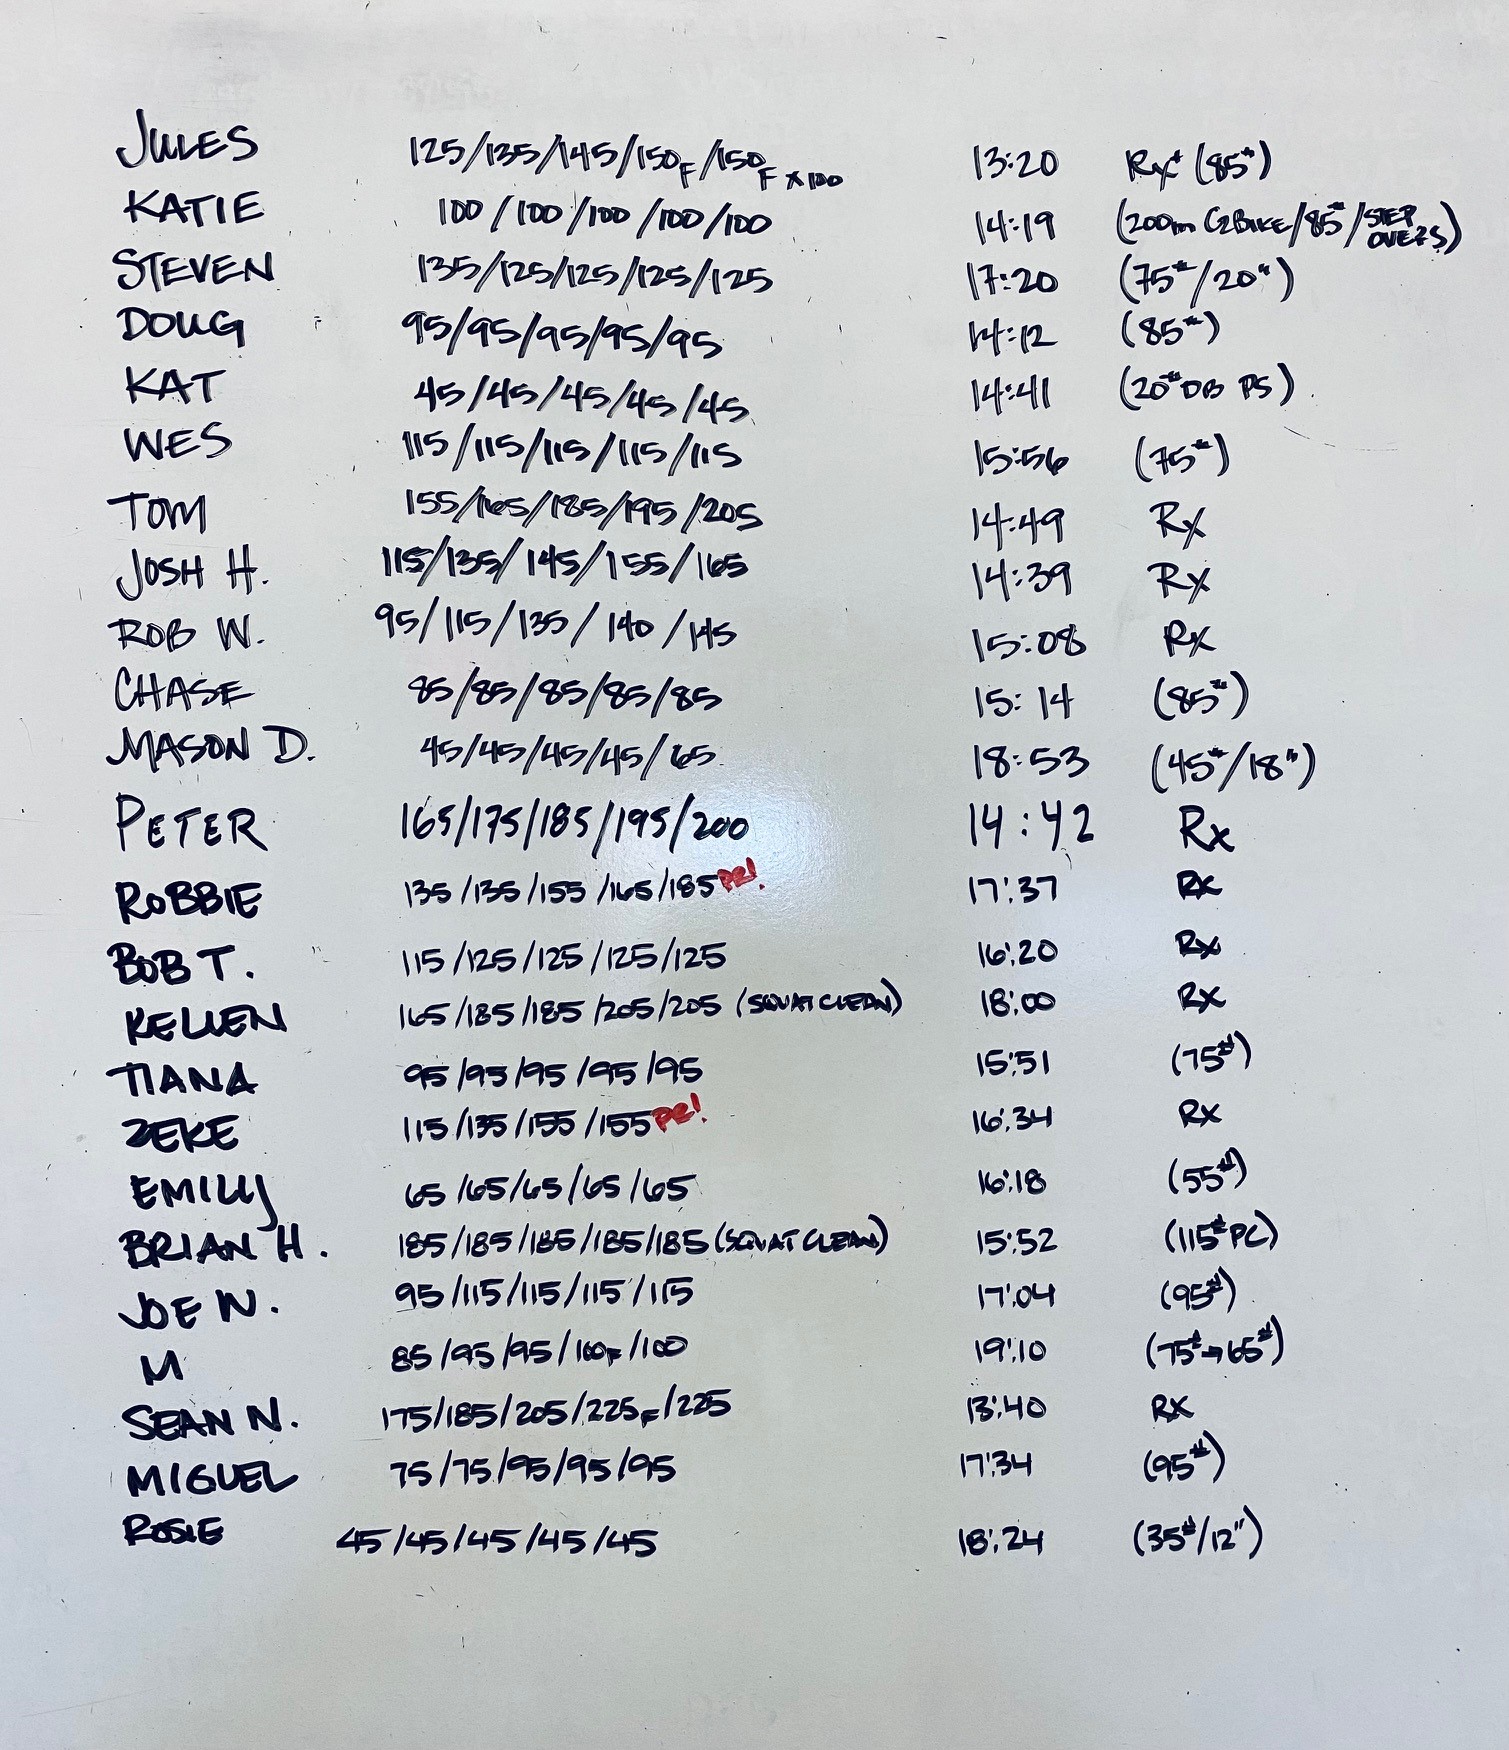 JULES 125/135/145/150F/150F x100 13:20 Rx+ (85#)
KATIE 100/100/100/100/100 14:19 (200m C2BIKE/85#/STEP OVERS)
STEVEN 135/125/125/125/125 17:20 (75#/20")
DOUG 95/95/95/95/95 14:12 (85#)
KAT 45/45/45/45/45 14:41 (20# DB PS)
WES 115/115/115/115/115 15:56 (75#)
TOM 155/165/185/195/205 14:49 Rx
JOSH H. 115/135/145/155/165 14:39 Rx
ROB W. 95/115/135/140/145 15:08 Rx
CHASE 85/85/85/85/85 15:14 (85#)
MASON D. 45/45/45/45/65 18:53 (45#/18")
PETER 165/175/185/195/200 14:42 Rx
ROBBIE 135/135/155/165/185 PR! 17:37 RX
BOB T. 115/125/125/125/125 16:20 RX
KELLEN 165/185/185/205/205 (SQUAT CLEAN) 18:00 RX
TIANA 95/95/95/95/95 15:51 (75#)
ZEKE 115/135/155/155 PR! 16:34 RX
EMILY 65/65/65/65/65 16:18 (55#)
BRIAN H. 185/185/185/185/185 (SQUAT CLEAN) 15:52 (115# PC)
JOE W. 95/115/115/115/115 17:04 (95#)
M 85/95/95/100F/100 19:10 (75#→65#)
SEAN N. 175/185/205/225F/225 13:40 RX
MIGUEL 75/75/95/95/95 17:34 (95#)
ROSIE 45/45/45/45/45 18:24 (35#/12")